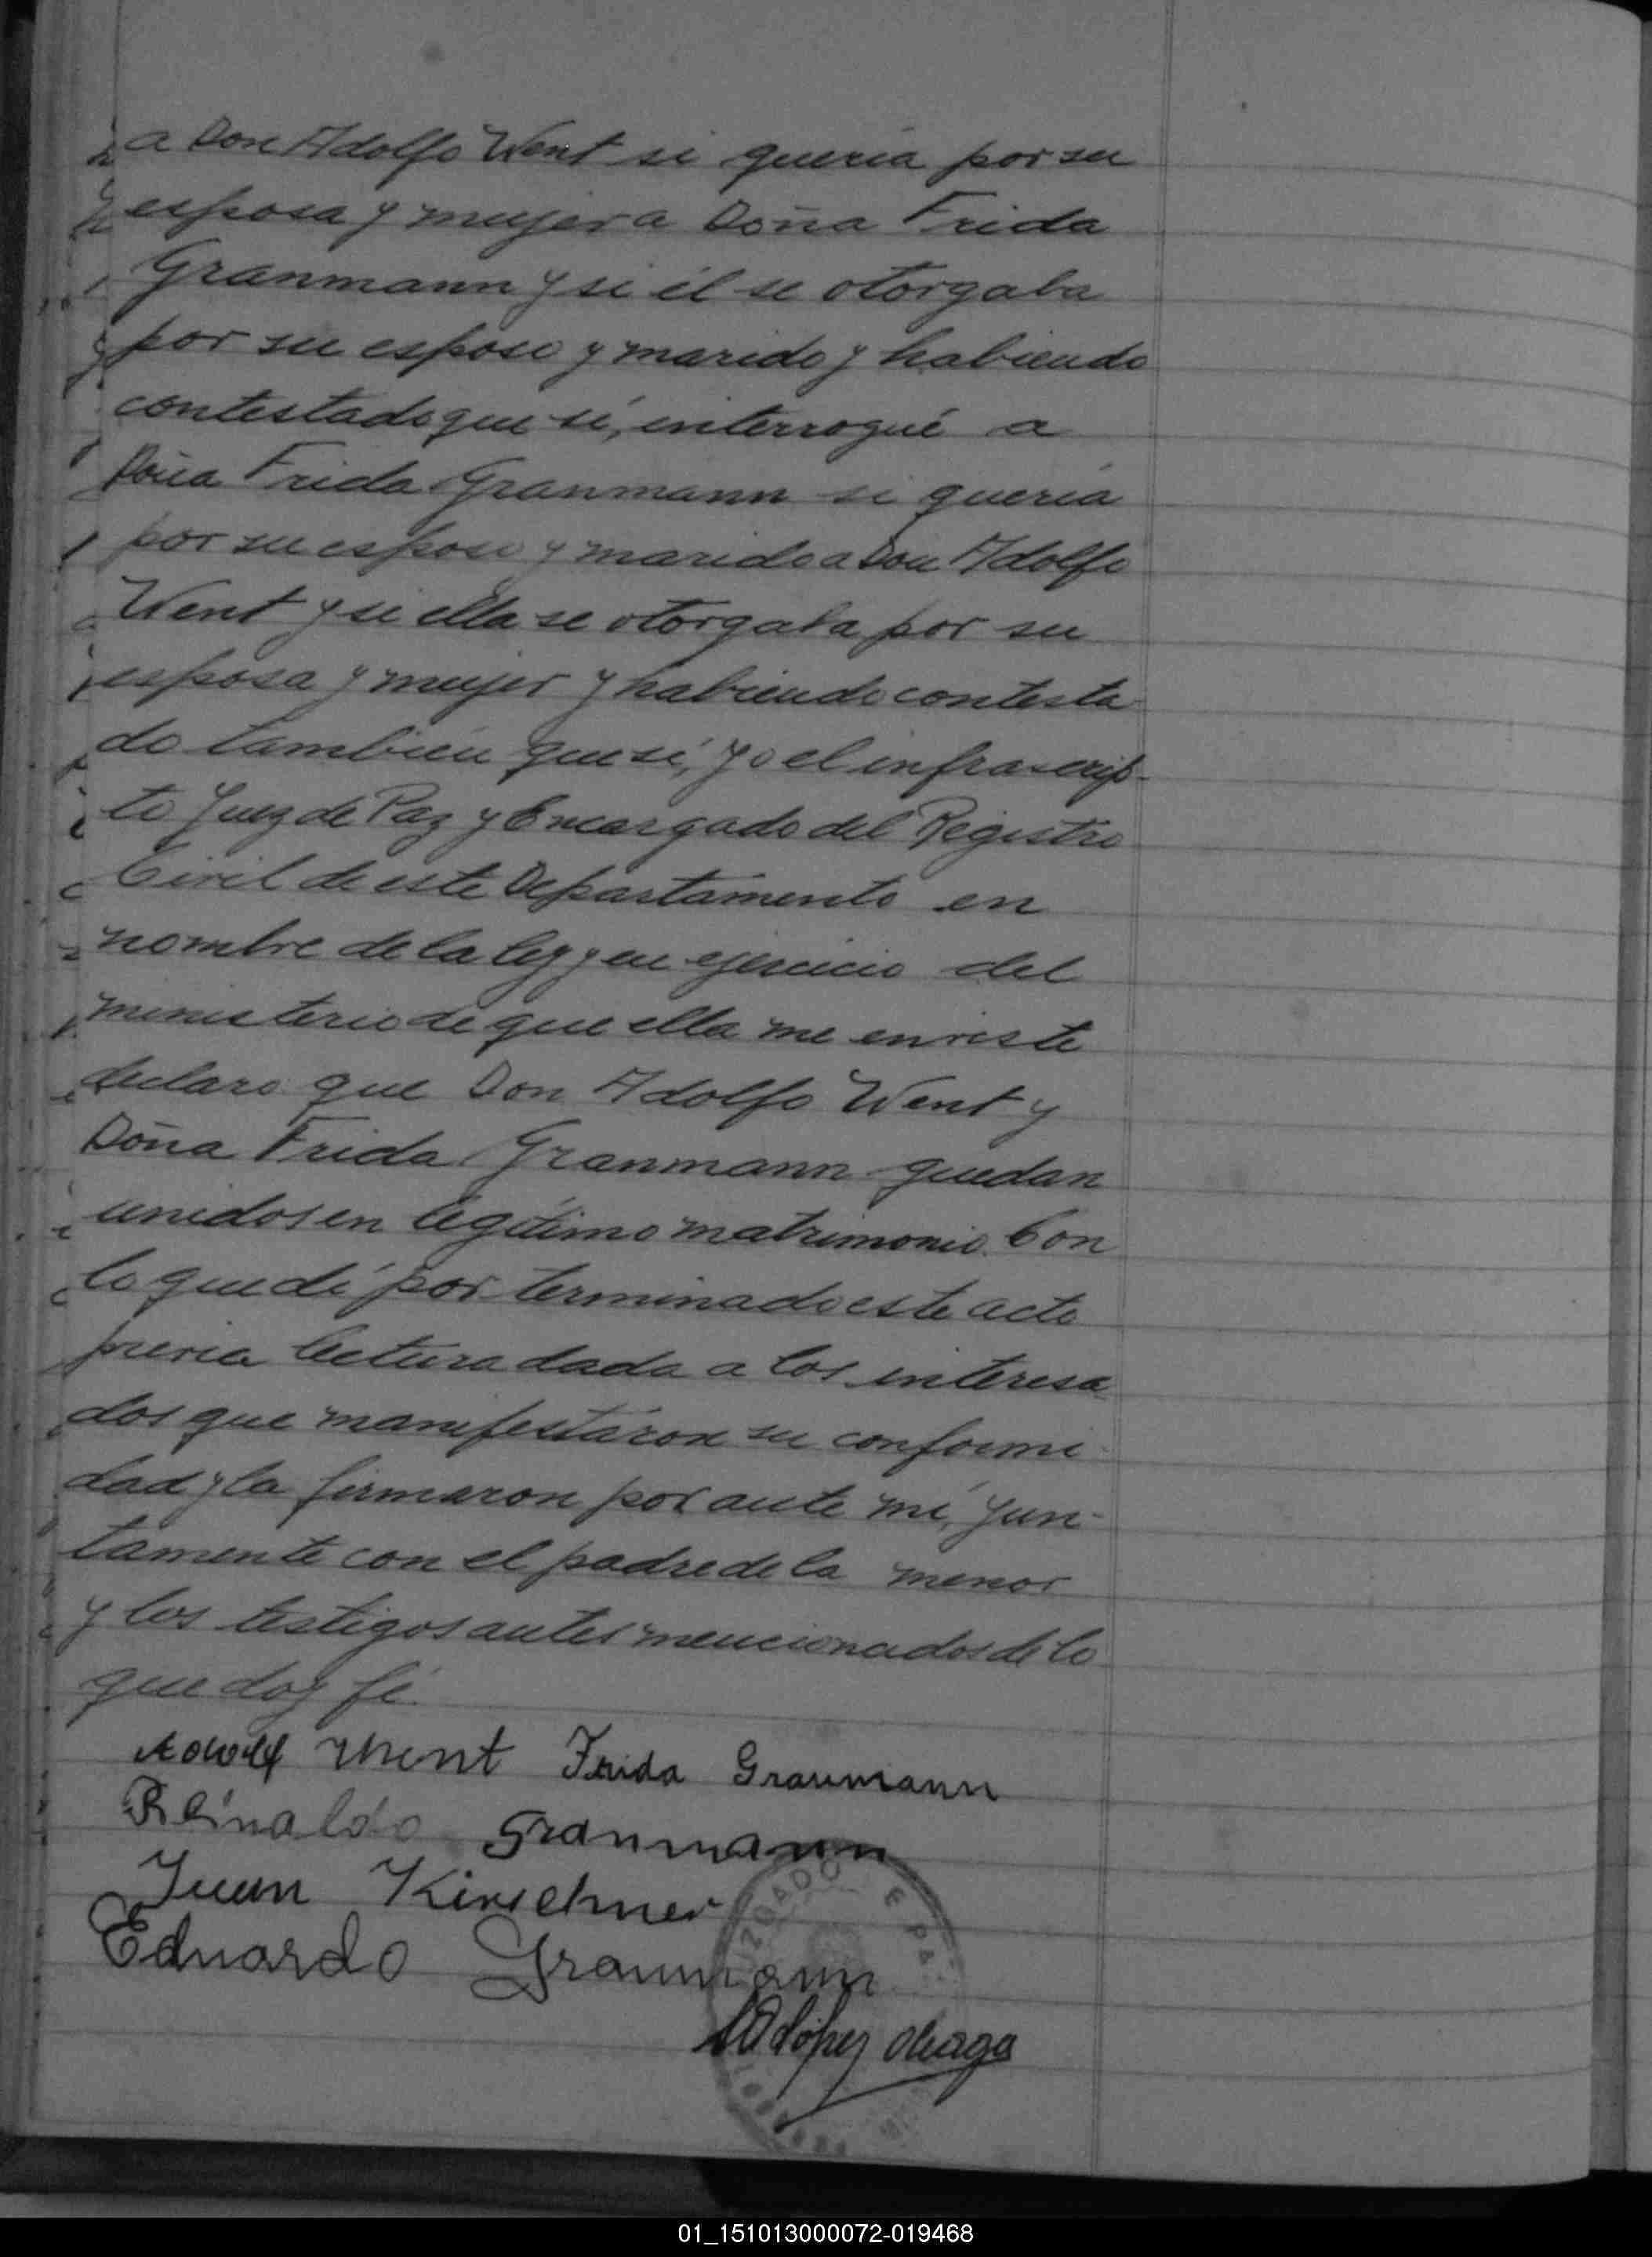 a Don Adolfo Went si quería por su
esposa y mujer a Doña Frida
Granmann y si él se otorgaba
por su esposo y marido y habiendo
contestado que sí, interrogué a
Doña Frida Granmann si quería
por su esposo y marido a Don Adolfo
Went y si ella se otorgaba por su
esposa y mujer y habiendo contesta
do también que sí, yo el infrascrip-
to Juez de Paz y Encargado del Registro
Civil de este Departamento en
nombre de la ley y en ejercicio del
ministerio de que ella me enviste
declaro que Don Adolfo Went y
Doña Frida Granmann quedan
unidos en legítimo matrimonio. Con
lo que dí por terminado este acto
previa lectura dada a los interesa
dos que manifestaron su conformi
dad y la firmaron por ante mí, jun-
tamente con el padre de la menor
y los testigos antes mencionados de lo
que doy fé.
Adolf Went Frida Graumann
Reinaldo Granmann
Juan Kirschner
Eduardo Graumann
López
JUZGADO DE PAZ
01_151013000072-019468